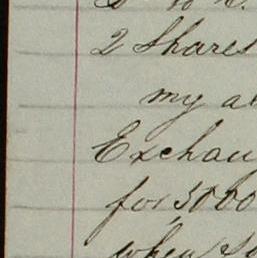 2 Shares
my a
Exchan
for 3000
when